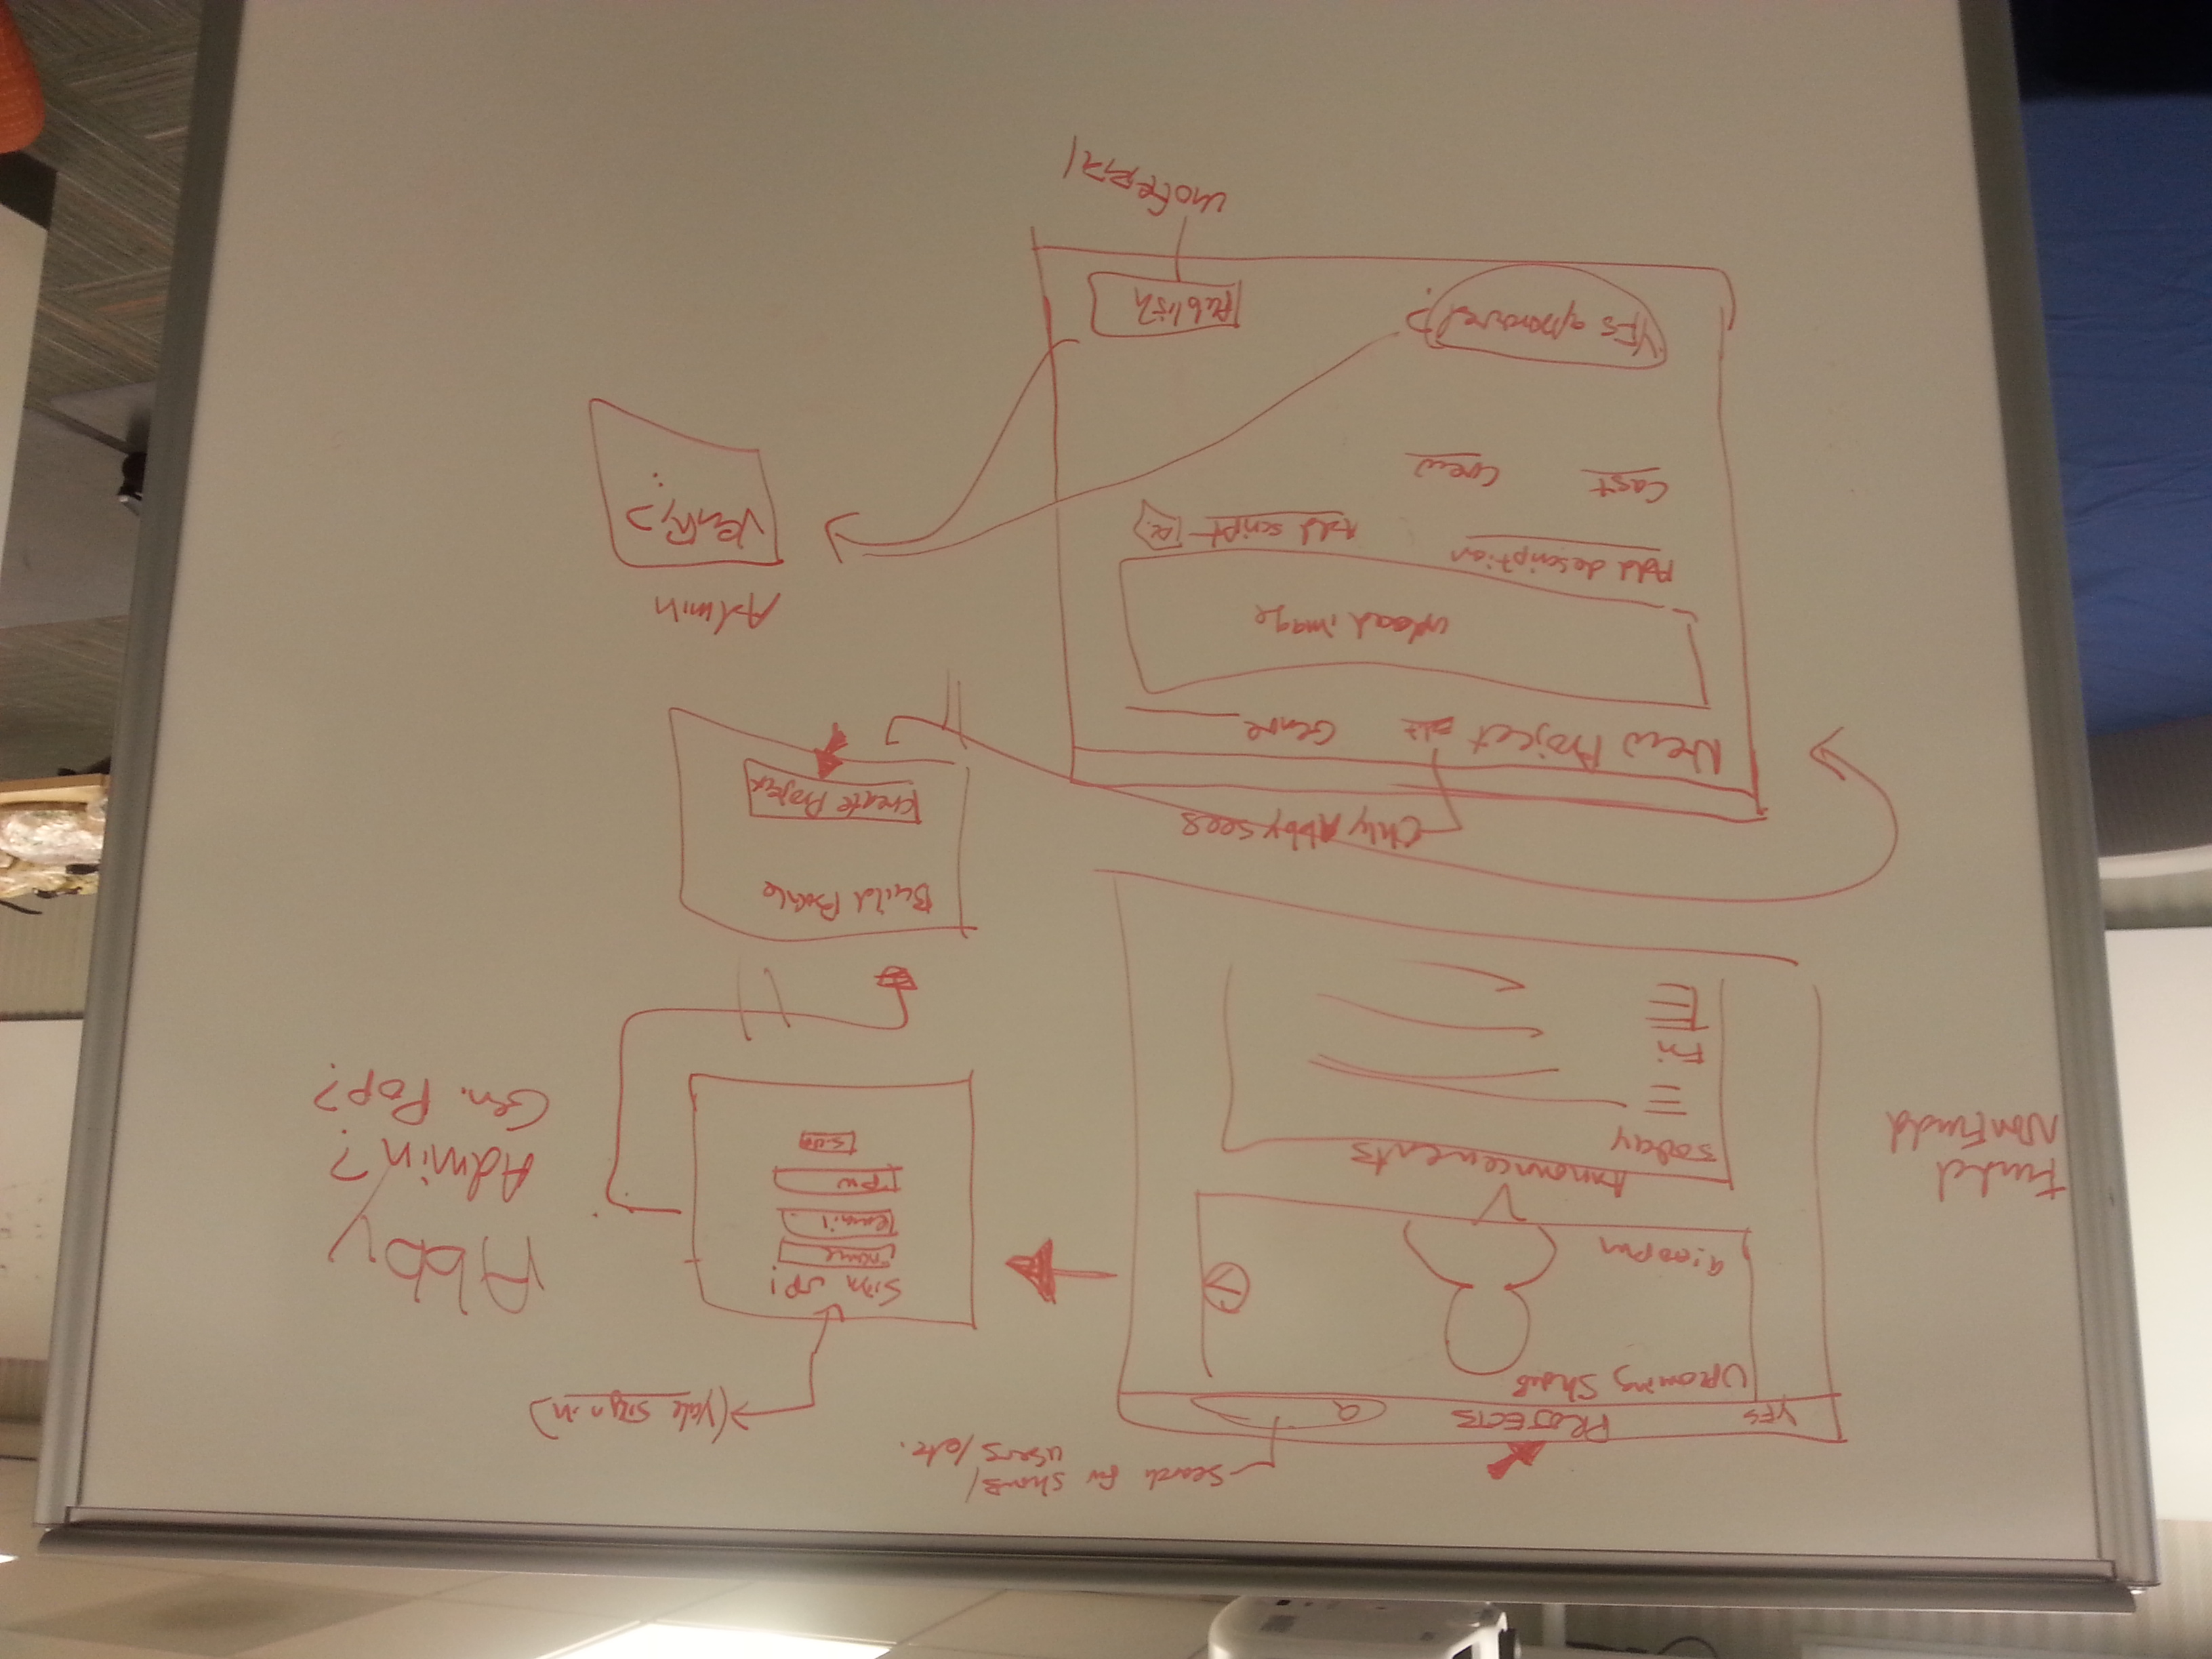 Search for shows/
users/etc.
YFS
PROJECTS
Upcoming Shows
9:00pm
Announcements
Today
Fri
Fundd
NonFundd
(Yale sign in)
Sign up!
name
email
pw
Abby
Admin?
Gen. Pop?
Build
Create Project
Only Abby sees
New Project Edit
Genre
upload image
Add description
Add script
Cast
Crew
YFS approved?
Publish
Admin
Verify?